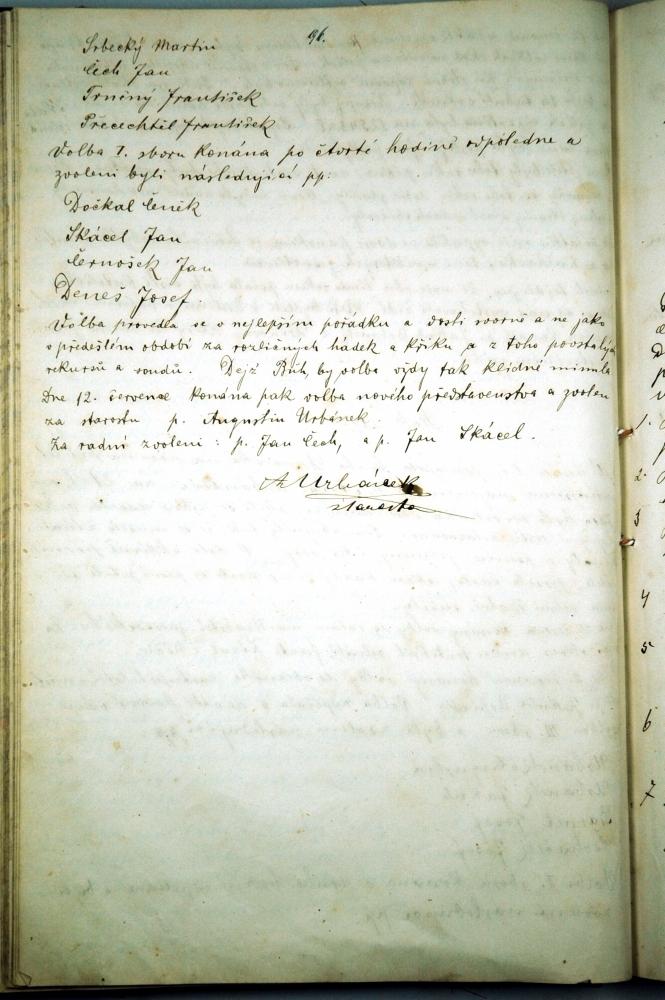 96.
Srbecký Martin
Čech Jan
Trněný František
Přecechtěl František
Volba I. sboru konána po čtvrté hodině odpoledne a
zvoleni byli následující pp:
Dočkal Čeněk
Skácel Jan
Černošek Jan
Deneš Josef.
Volba provedla se v nejlepším pořádku a dosti svorně a ne jako
v předešlém období za rozličných hádek a křiku a z toho povstalých
rekursů a soudů. Dejž Bůh, by volba vždy tak klidně minula
Dne 12. července konána pak volba nového představenstva a zvolen
za starostu p. Augustin Urbánek.
Za radní zvoleni: p. Jan Čech, a p. Jan Skácel.
A Urbánek
starosta
1.
2.
3
4
5
6
7.